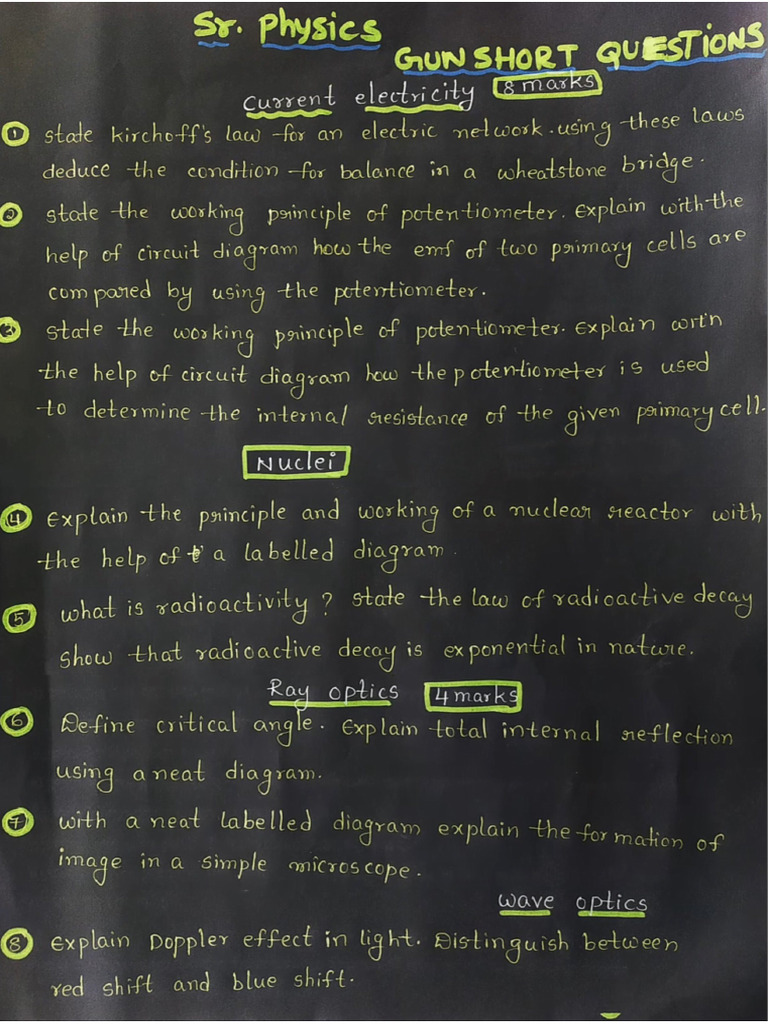 Sr. Physics
GUNSHORT QUESTIONS
Current electricity 8 marks
1 state kirchoff's law for an electric network. using these laws
deduce the condition for balance in a wheatstone bridge.
2 state the working principle of potentiometer. Explain with the
help of circuit diagram how the emf of two primary cells are
compared by using the potentiometer.
3 state the working principle of potentiometer. Explain with
the help of circuit diagram how the potentiometer is used
to determine the internal resistance of the given primary cell.
Nuclei
4 Explain the principle and working of a nuclear reactor with
the help of a labelled diagram.
5 what is radioactivity? state the law of radioactive decay
show that radioactive decay is exponential in nature.
Ray optics 4 marks
6 Define critical angle. Explain total internal reflection
using a neat diagram.
7 with a neat labelled diagram explain the formation of
image in a simple microscope.
wave optics
8 Explain Doppler effect in light. Distinguish between
red shift and blue shift.